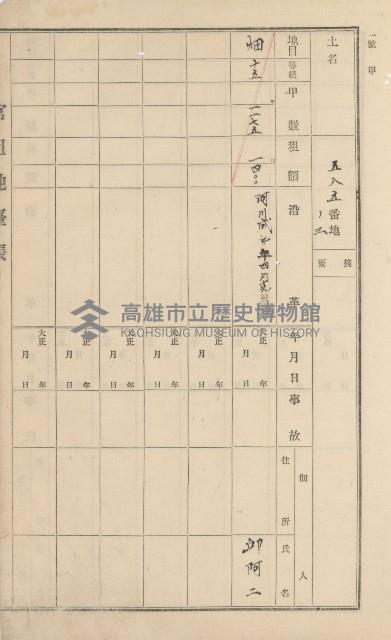 一號 甲
土名
五八五番地
ノ三
摘要
地目
等級
甲數
租額
沿革
年月日
事故
佃人
住所
氏名
畑
十五
一二七五
一四〇
大正 年 月 日
大正 年 月 日
大正 年 月 日
大正 年 月 日
大正 年 月 日
大正 年 月 日
阿二
官租地臺帳
高雄市立歷史博物館
KAOHSIUNG MUSEUM OF HISTORY